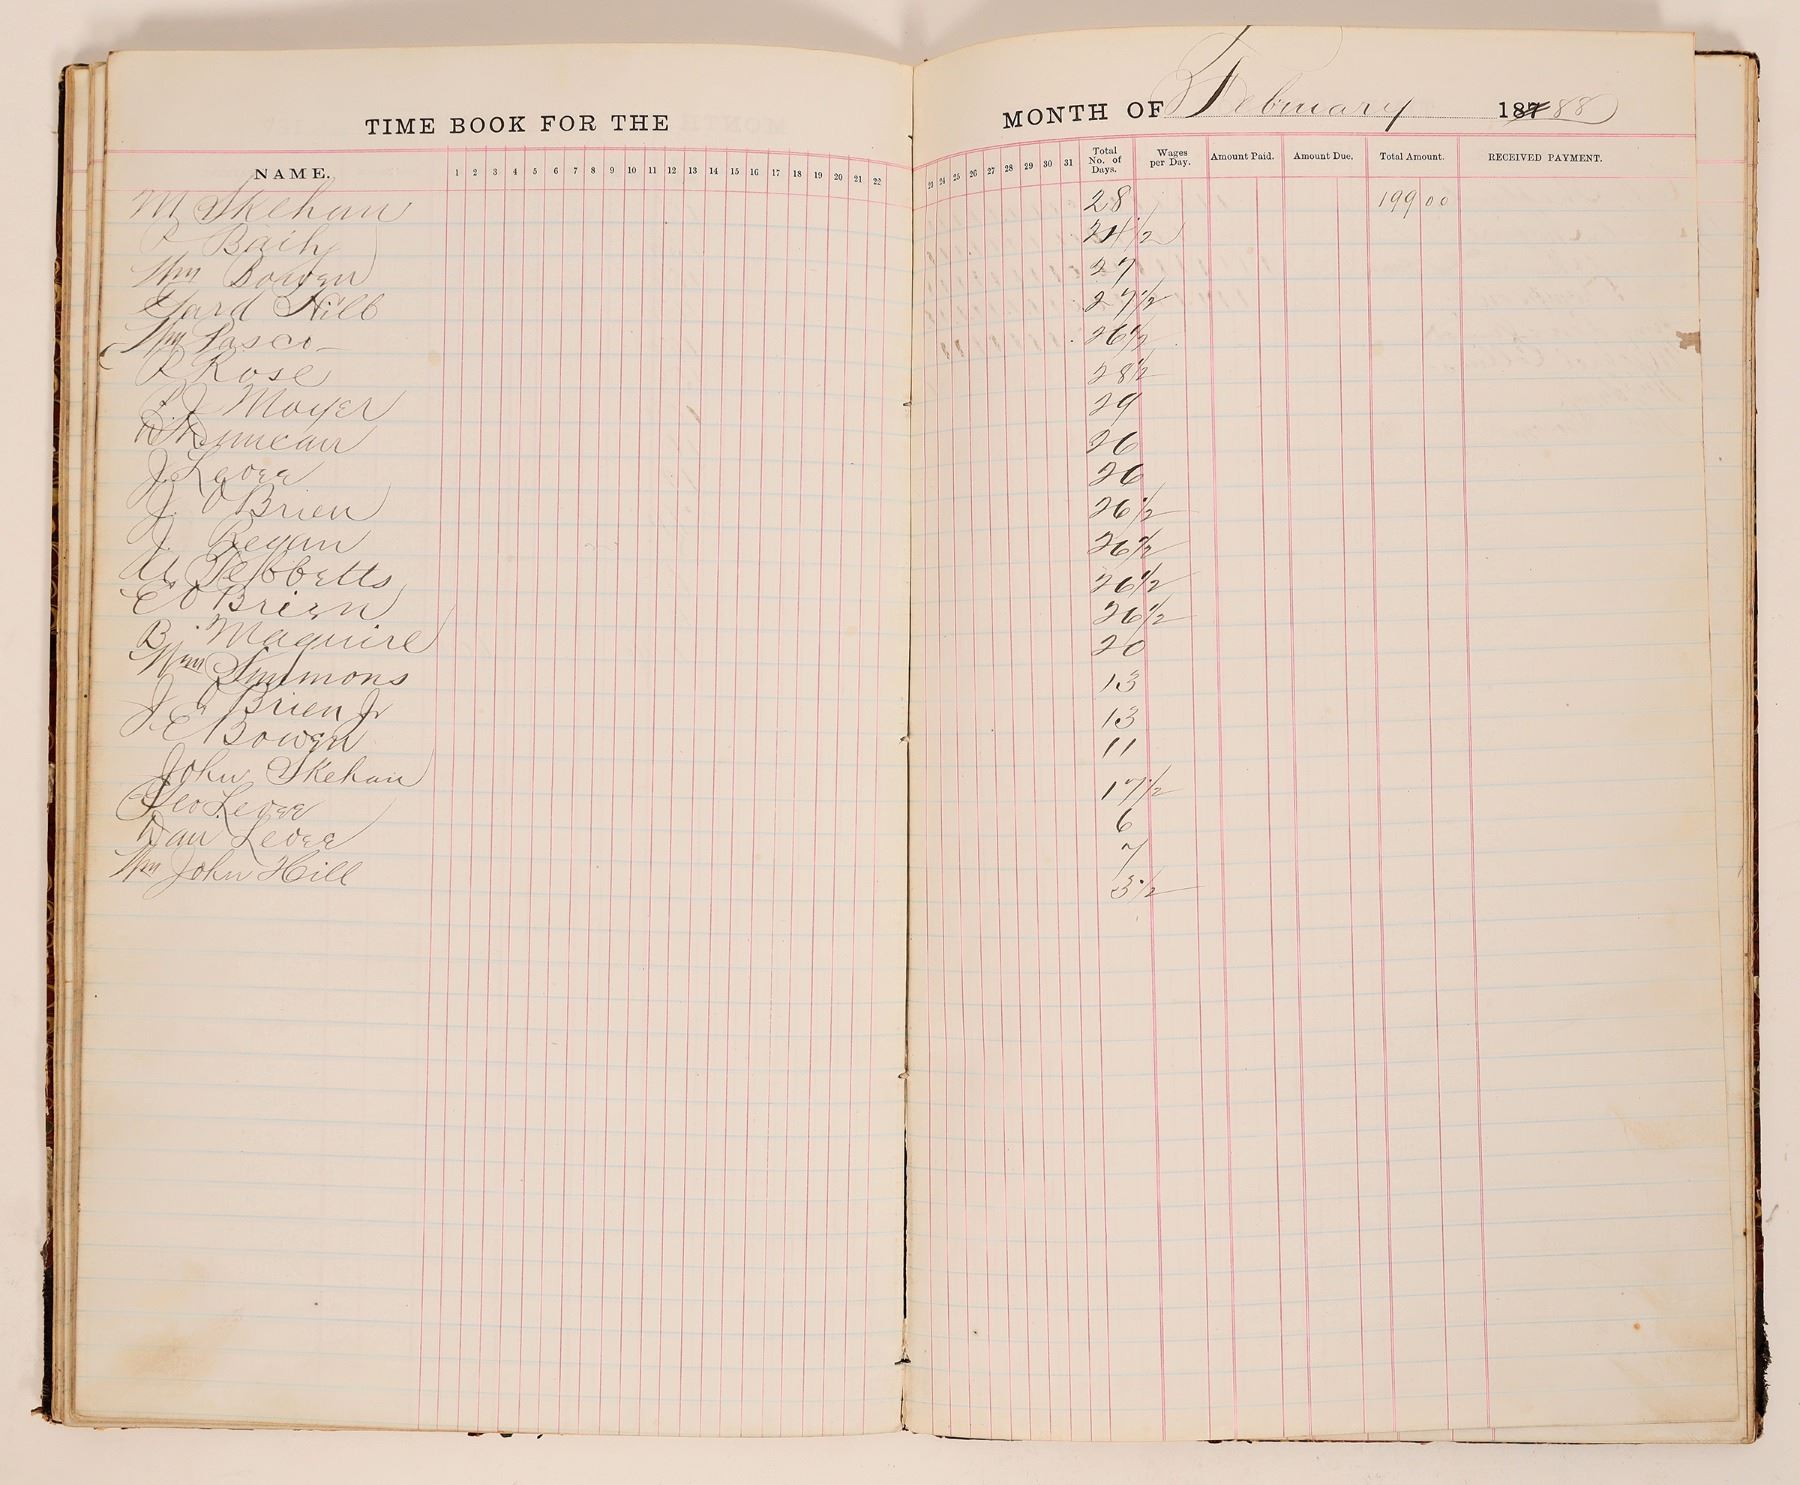 TIME BOOK FOR THE
MONTH OF February 187 88
NAME. 1 2 3 4 5 6 7 8 9 10 11 12 13 14 15 16 17 18 19 20 21 22 23 24 25 26 27 28 29 30 31 Total No. of Days. Wages per Day. Amount Paid. Amount Due. Total Amount. RECEIVED PAYMENT.
M Skehan 28 199 00
P 24 1/2
Wm Bowen 27
Gard Hill 27 1/2
Wm Pasco 26 1/2
P Rose 28 1/2
Moyer 29
Duncan 26
J. Levee 26
J. O Brien 26 1/2
J. Regan 26 1/2
Tebbetts 26 1/2
E O Brien 26 1/2
B. Maguire 20
Wm Simmons 13
J O Brien Jr 13
J. E Bowen 11
John Skehan 17 1/2
Geo Levee 6
Dan Levee 7
Wm John Hill 3 1/2